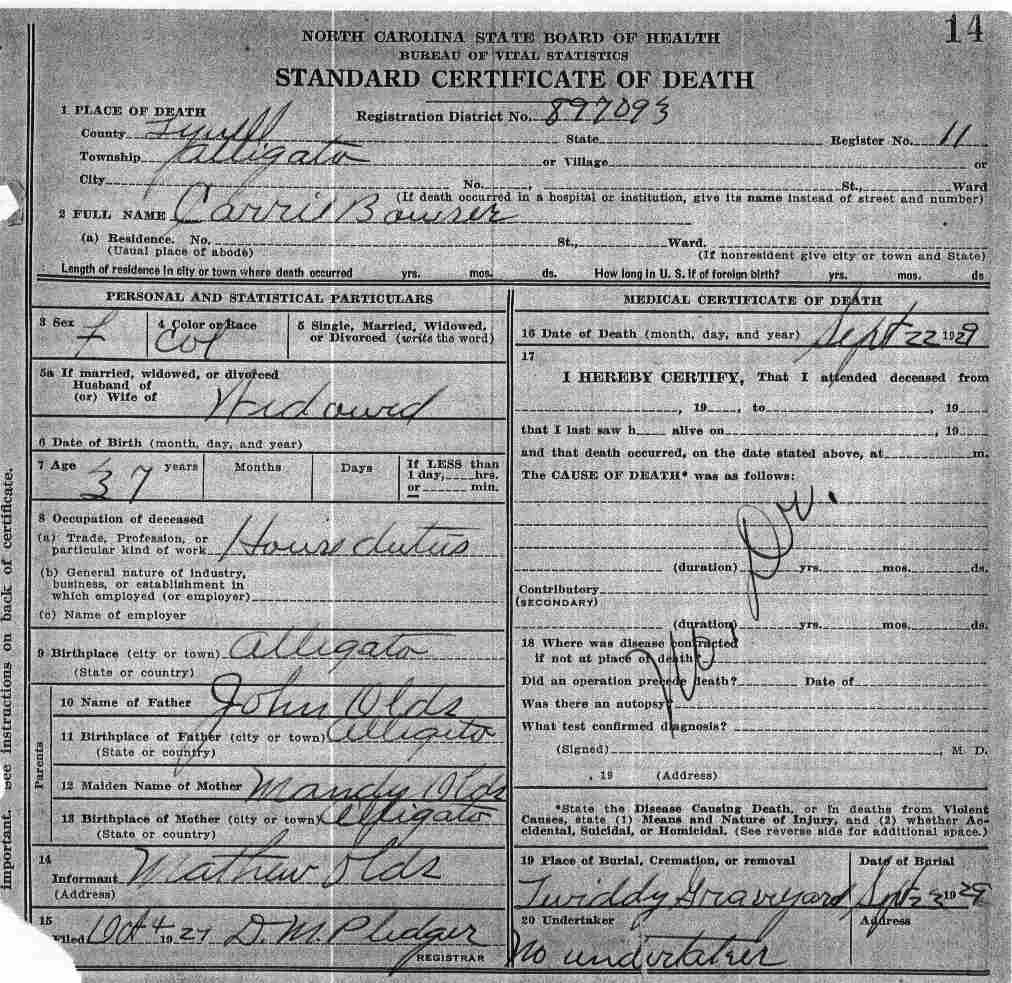 14
NORTH CAROLINA STATE BOARD OF HEALTH
BUREAU OF VITAL STATISTICS
STANDARD CERTIFICATE OF DEATH
1 PLACE OF DEATH Registration District No. 897093
County Tyrrell State Register No. 11
Township Alligato or Village or
City No. , St., Ward
(If death occurred in a hospital or institution, give its name instead of street and number)
2 FULL NAME Carrie Bowser
(a) Residence. No. St., Ward.
(Usual place of abode) (If nonresident give city or town and State)
Length of residence in city or town where death occurred yrs. mos. ds. How long in U. S. if of foreign birth? yrs. mos. ds
PERSONAL AND STATISTICAL PARTICULARS
3 Sex 4 Color or Race 5 Single, Married, Widowed,
or Divorced (write the word)
f Col
5a If married, widowed, or divorced
Husband of
(or) Wife of Widowed
6 Date of Birth (month, day, and year)
7 Age 37 years Months Days If LESS than
1 day, hrs.
or min.
8 Occupation of deceased
(a) Trade, Profession, or
particular kind of work House duties
(b) General nature of industry,
business, or establishment in
which employed (or employer)
(c) Name of employer
9 Birthplace (city or town) Alligato
(State or country)
Parents
10 Name of Father John Olds
11 Birthplace of Father (city or town) Alligato
(State or country)
12 Maiden Name of Mother Mandy Olds
13 Birthplace of Mother (city or town) Alligato
(State or country)
14
Informant Mathew Olds
(Address)
15
Filed Oct 4 19 D. M. Pledger
REGISTRAR
MEDICAL CERTIFICATE OF DEATH
16 Date of Death (month, day, and year) Sept 22 1929
17
I HEREBY CERTIFY, That I attended deceased from
, 19 , to , 19
that I last saw h alive on , 19
and that death occurred, on the date stated above, at m.
The CAUSE OF DEATH* was as follows:
No Dr.
(duration) yrs. mos. ds.
Contributory
(SECONDARY)
(duration) yrs. mos. ds.
18 Where was disease contracted
if not at place of death?
Did an operation precede death? Date of
Was there an autopsy?
What test confirmed diagnosis?
(Signed) , M. D.
, 19 (Address)
*State the Disease Causing Death, or in deaths from Violent
Causes, state (1) Means and Nature of Injury, and (2) whether Ac-
cidental, Suicidal, or Homicidal. (See reverse side for additional space.)
19 Place of Burial, Cremation, or removal Date of Burial
Twiddy Graveyard Sept 23 1929
20 Undertaker Address
No undertaker
important. See instructions on back of certificate.